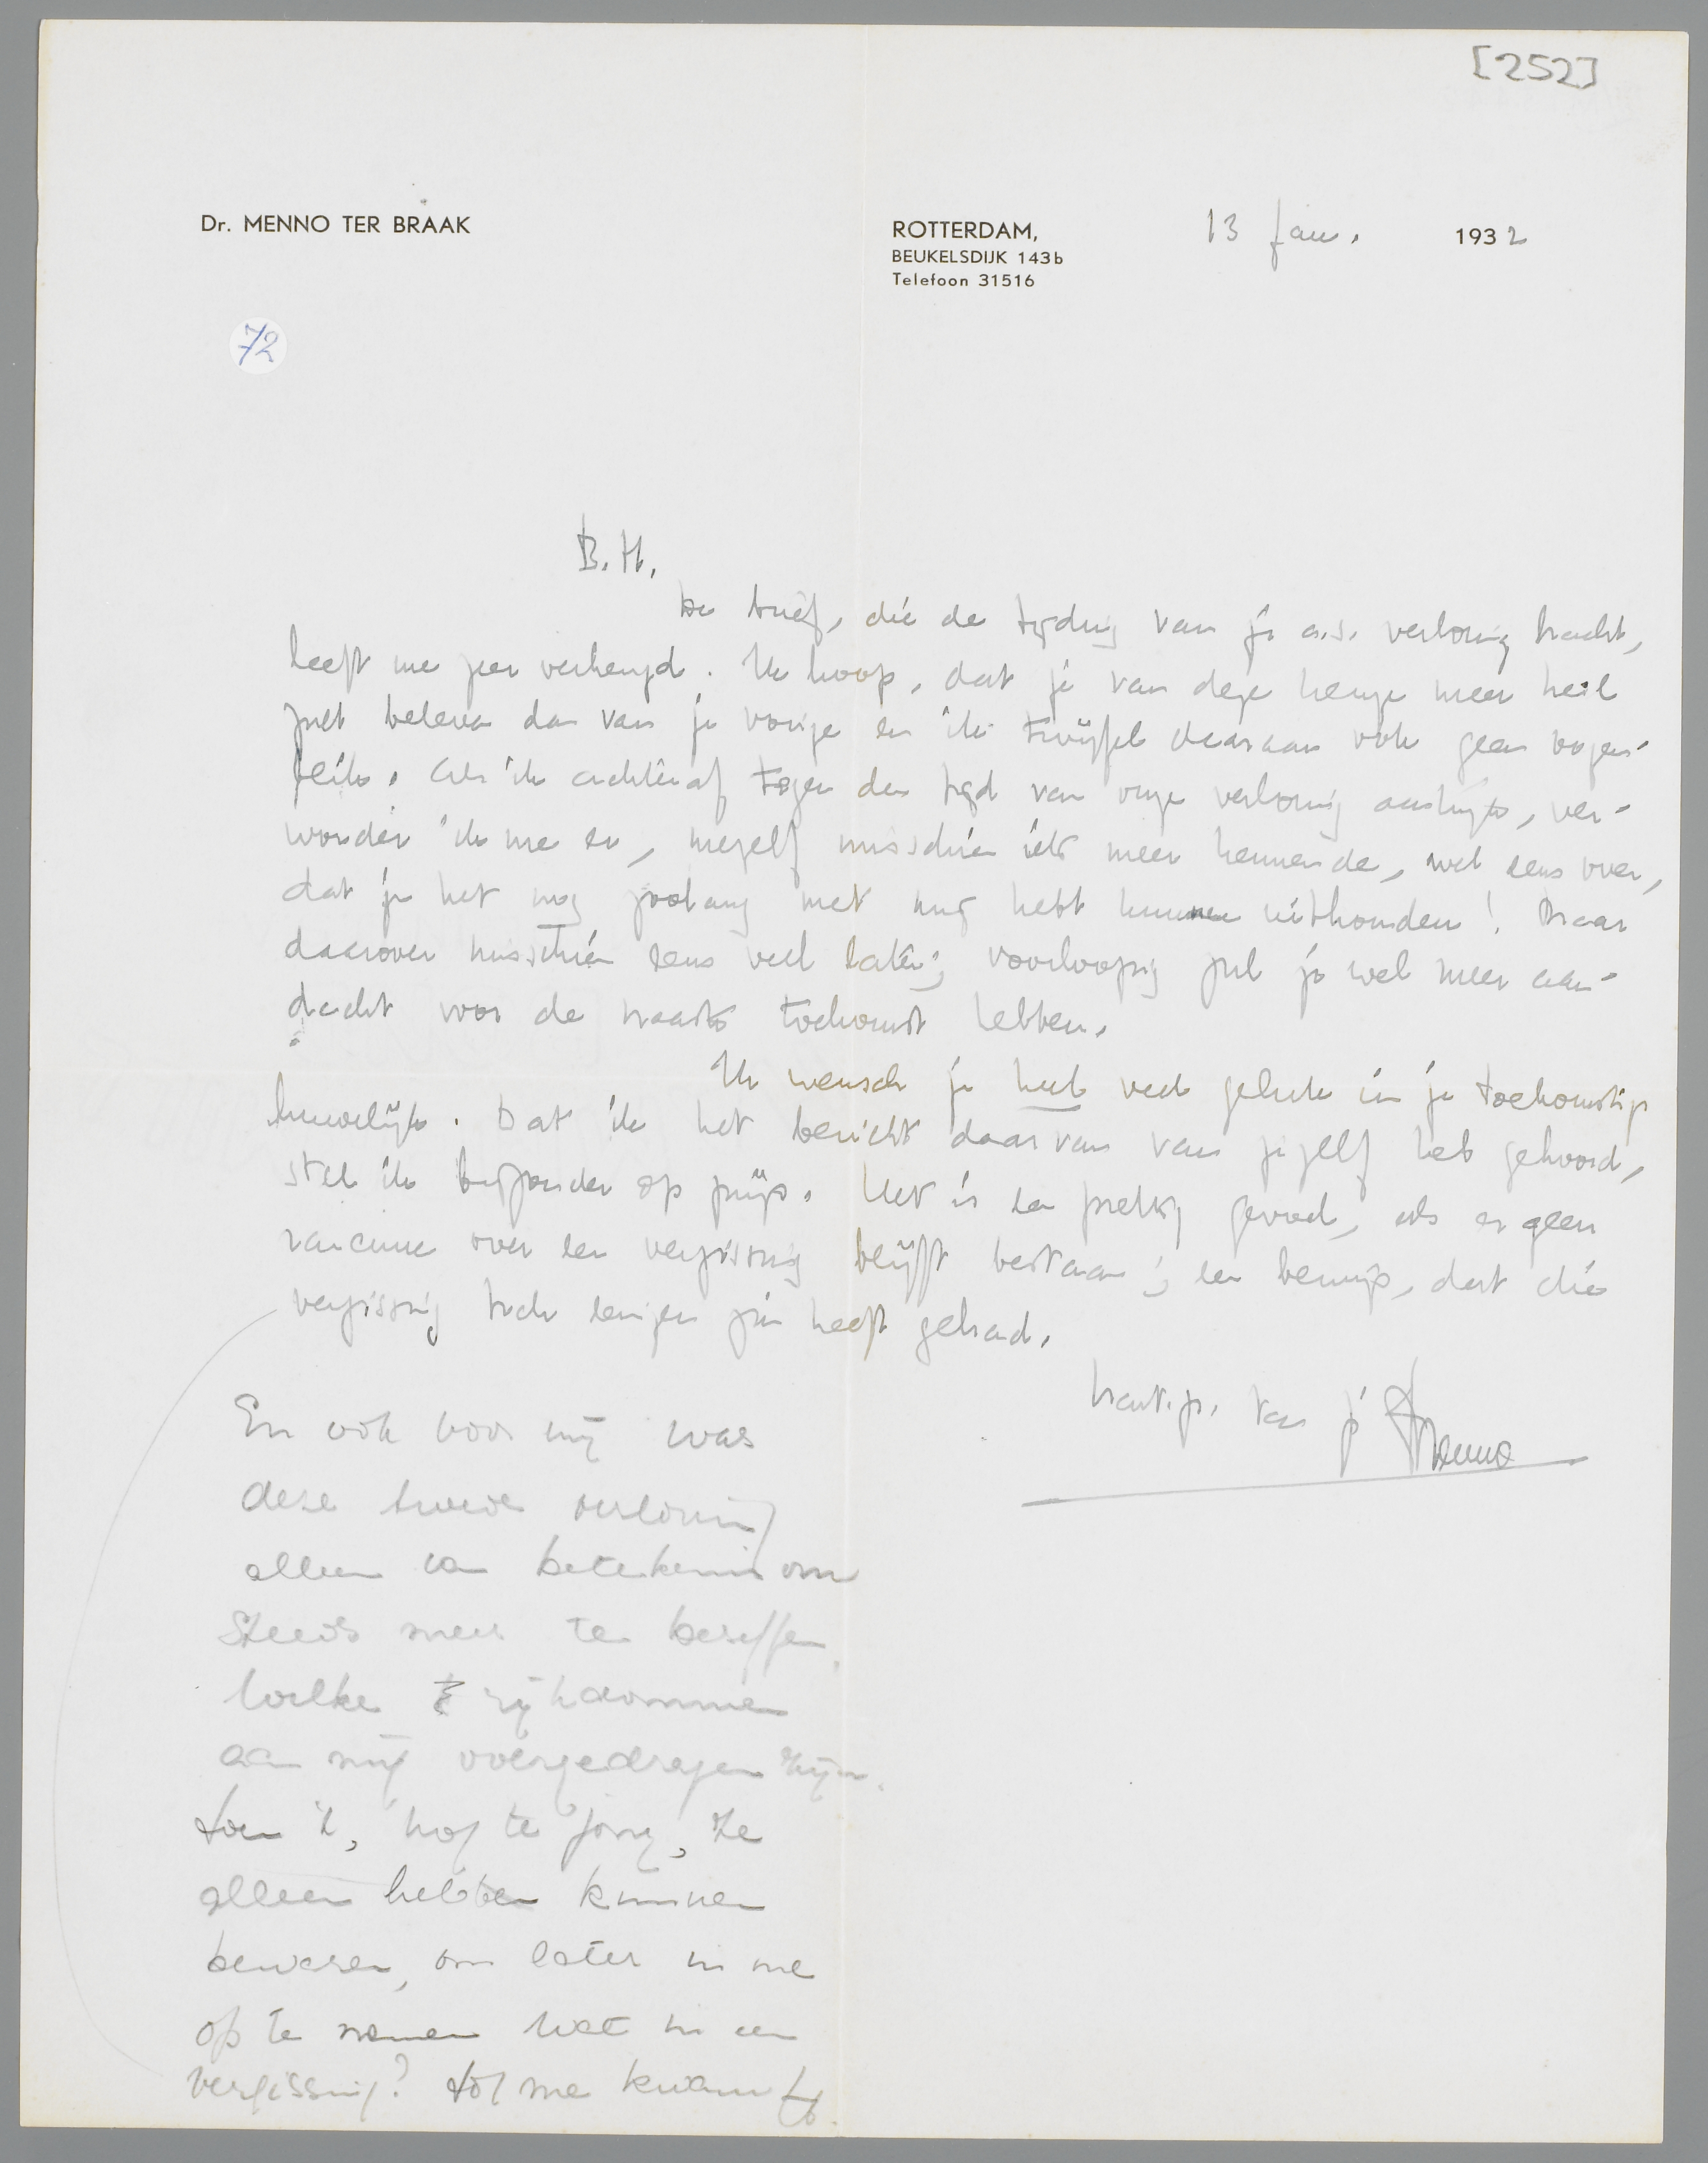 [252]
Dr. MENNO TER BRAAK
ROTTERDAM, 13 Jan. 1932
BEUKELSDIJK 143b
Telefoon 31516
72
B.H.
De brief, die de tijding van je a.s. verloving bracht,
heeft me zeer verheugd. Ik hoop, dat je van deze keuze meer heil
zult beleven dan van je vorige en ik twijfel daaraan ook geen oogen-
blik. Als ik achteraf tegen den tijd van onze verloving aankijk, ver-
wonder ik me er, mezelf misschien iets meer kennende, wel eens over,
dat je het nog zoolang met mij hebt kunnen uithouden! Maar
daarover misschien eens veel later; voorloopig zul je wel meer aan-
dacht voor de naaste toekomst hebben.
Ik wensch je heel veel geluk in je toekomstig
huwelijk. Dat ik het bericht daarvan van jezelf heb gehoord,
stel ik bijzonder op prijs. Het is een prettig gevoel, als er geen
rancune over een vergissing blijft bestaan; een bewijs, dat die
vergissing toch eenigen zin heeft gehad.
hart. gr. van je Menno
En ook voor mij was
deze tweede verloving
alleen van betekenis om
steeds meer te beseffen
welke rijkdommen
aan mij overgedragen zijn.
toen ik, nog te jong, ze
alleen hebben kunnen
bewaren, om later in me
op te nemen wat in een
vergissing? tot me kwam